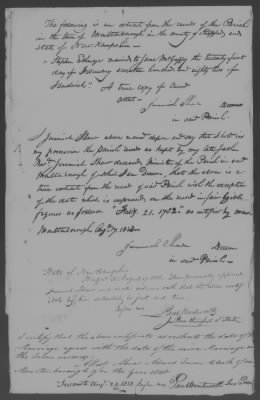 The following is an extract from the records of this Parish
in the town of Moultonborough in the county of Strafford, and
state of New Hampshire.
Stephen married to Jane McGaffey the twenty first
day of February seventeen hundred and eighty two for
Sandwich" A true copy of Record
Attest – Jeremiah Shaw
in said Parish.
I Jeremiah Shaw above named depose and say that I hold in
my possession the Parish records as kept by my late father
Revd. Jeremiah Shaw deceased, Minister of the Parish in said
Moultonborough of which I am , that the above is a
true extract from the record of said Parish with the exception
of the date which is expressed, on the record in fair legible
figures as follows "Feby. 21. 1782" as certified by me
Moultonborough Augt. 1838
Jeremiah Shaw
in said Parish
State of New Hampshire
August 1838. Then personally appeared
Jeremiah Shaw and made solemn oath that the above certifi-
cate by him subscribed is just and true.
Before me
Paul Wentworth
Just. Peace
I certify that the above certificate as relates to the date of the
Marriage agrees with the date of the same Marriage on
the Town records.
Attest Town Clerk of
Moultonborough for the year 1838
Augt 1838. before me Paul Wentworth Jus. Peace